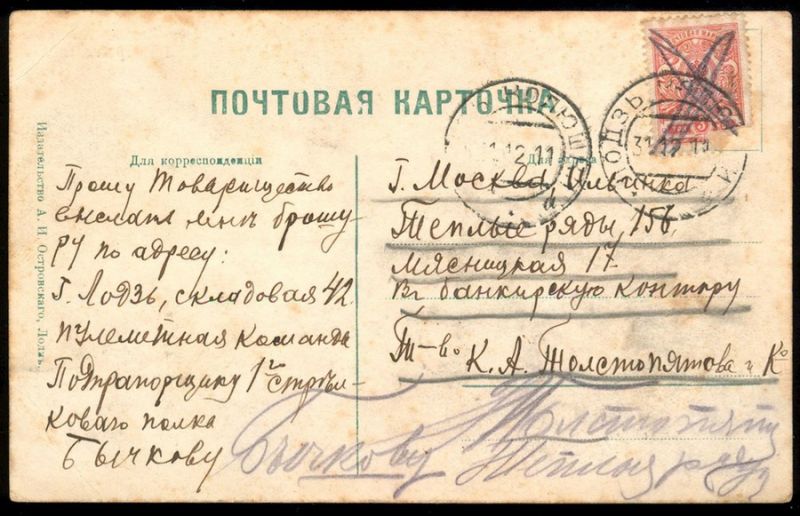 ПОЧТОВАЯ КАРТОЧКА
Для корреспонденции
Прошу Товарищество
выслать мнѣ брошю-
ру по адресу:
Г. Лодзь, складовая 42
пулеметная команда
Подпрапорщику 1го стрѣл-
коваго полка
Бычкову
Для адреса
Г. Москва, Ильинка
Теплые ряды 156.
Мясницкая 17
Въ банкирскую контору
Т-во К. А. Толстопятова и Ко
Бычкову
Теплые ряды
Издательство А. И. Островскаго, Лодзь.
ЛОДЗЬ
31.12.11
12.11